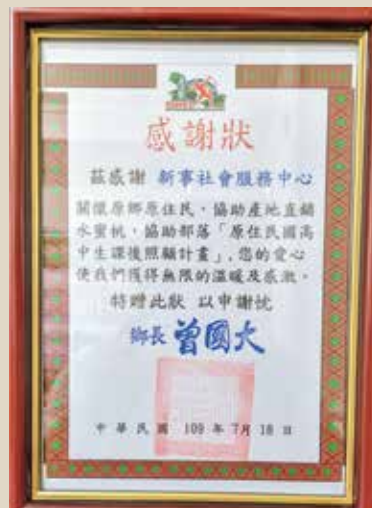 感謝狀
茲感謝 新事社會服務中心
關懷原鄉原住民，協助產地直銷
水蜜桃，協助部落「原住民國高
中生課後照顧計畫」，您的愛心
使我們獲得無限的溫暖及感激。
特贈此狀 以申謝忱
鄉長 曾國大
中華民國 109 年 7月 18 日